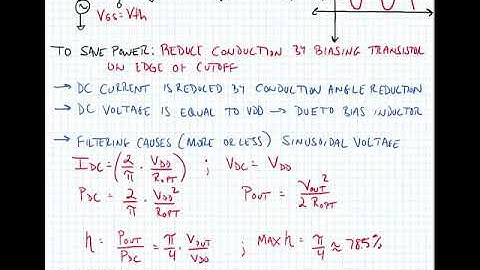 VGS = Vth
TO SAVE POWER: REDUCE CONDUCTION BY BIASING TRANSISTOR
ON EDGE OF CUTOFF
→ DC CURRENT IS REDUCED BY CONDUCTION ANGLE REDUCTION
→ DC VOLTAGE IS EQUAL TO VDD → DUE TO BIAS INDUCTOR
→ FILTERING CAUSES (MORE OR LESS) SINUSOIDAL VOLTAGE
IDC = (2/π · VDD/ROPT) ; VDC = VDD
PDC = 2/π · VDD²/ROPT POUT = VOUT²/2 ROPT
η = POUT/PDC = π/4 · VOUT/VDD ; MAX η = π/4 ≈ 78.5%